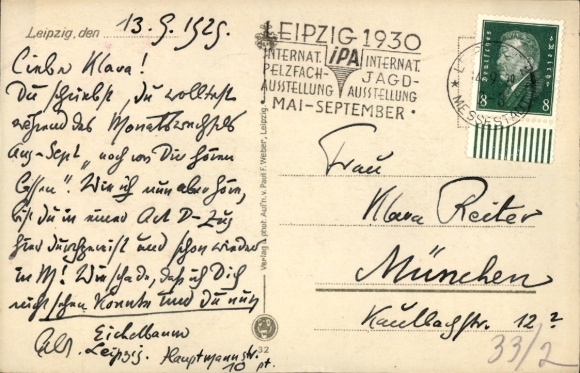 Leipzig, den 13.9.1929.
Liebe Klara!
Du schriebst, Du wolltest
während des Monatswechsels
Aug-Sept „noch von Dir hören
lassen“. Wie ich nun aber höre,
bist Du in einer Art D-Zug
hier durchgereist und schon wieder
in M! Wie schade, daß ich Dich
nicht sehen konnte und Du nun
Eichelbaum
Leipzig. Hauptmannstr.
10 pt.
Verlag u. phot. Aufn. v. Paul F. Weber, Leipzig.
32
LEIPZIG 1930
INTERNAT. iPA INTERNAT.
PELZFACH- JAGD-
AUSSTELLUNG AUSSTELLUNG
MAI-SEPTEMBER
MESSESTADT
Deutsches Reich
8 8
Frau
Klara Reiter
München
Kaulbachstr. 12 ?
33/2